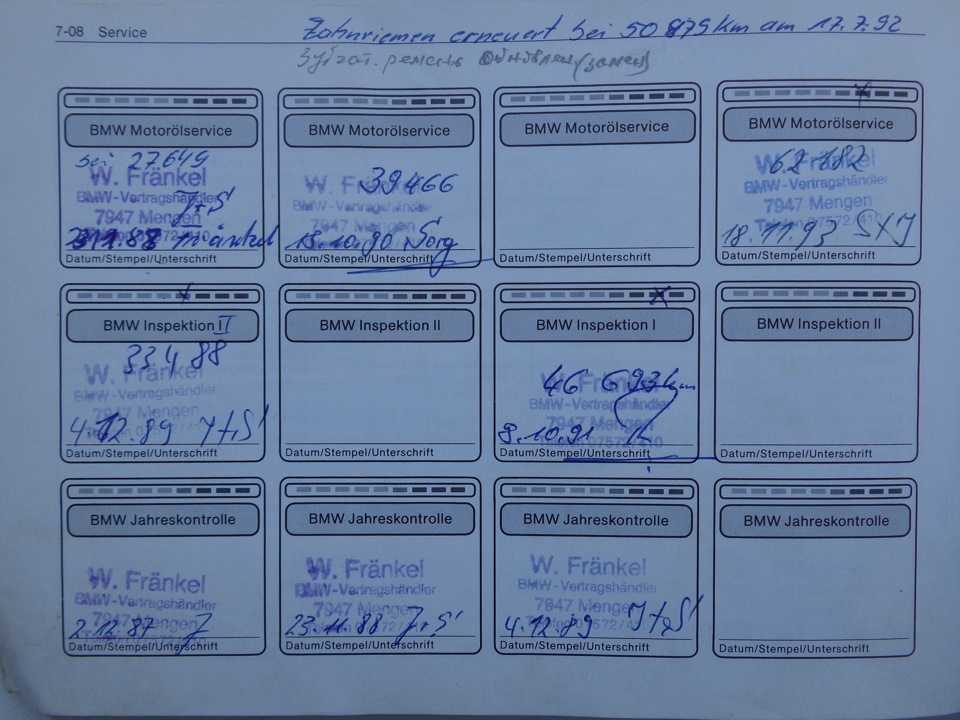 7-08 Service
Zahnriemen erneuert bei 50 879 km am 17.7.92
ремень
BMW Motorölservice
bei 27649
W. Fränkel
BMW-Vertragshändler
7947 Mengen
Fränkel
Datum/Stempel/Unterschrift
BMW Motorölservice
39466
W. Fränkel
BMW-Vertragshändler
7947 Mengen
15.10.90
Datum/Stempel/Unterschrift
BMW Motorölservice
Datum/Stempel/Unterschrift
BMW Motorölservice
W. Fränkel
BMW-Vertragshändler
7947 Mengen
Telefon 07572/410
18.11.93
Datum/Stempel/Unterschrift
BMW Inspektion II
33488
W. Fränkel
BMW-Vertragshändler
7947 Mengen
4.12.89 J+S
Datum/Stempel/Unterschrift
BMW Inspektion II
Datum/Stempel/Unterschrift
BMW Inspektion I
46 693 km
W. Fränkel
BMW-Vertragshändler
7947 Mengen
Telefon 07572/410
8.10.91
Datum/Stempel/Unterschrift
BMW Inspektion II
Datum/Stempel/Unterschrift
BMW Jahreskontrolle
W. Fränkel
BMW-Vertragshändler
7947 Mengen
2.12.87 J
Datum/Stempel/Unterschrift
BMW Jahreskontrolle
W. Fränkel
BMW-Vertragshändler
7947 Mengen
23.11.88 J+S
Datum/Stempel/Unterschrift
BMW Jahreskontrolle
W. Fränkel
BMW-Vertragshändler
7947 Mengen
4.12.89 J+S
Datum/Stempel/Unterschrift
BMW Jahreskontrolle
Datum/Stempel/Unterschrift